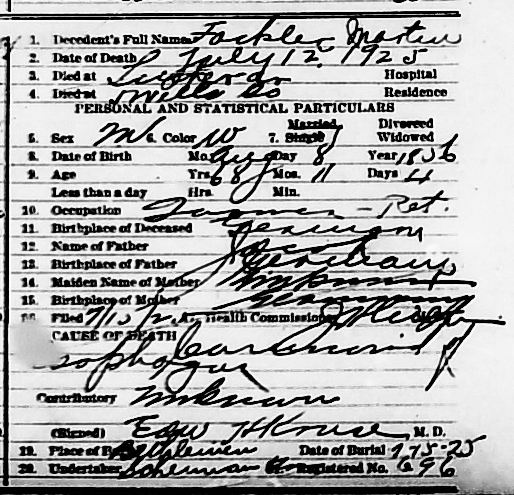 1. Decedent's Full Name Fackler Martin
2. Date of Death July 12 1925
3. Died at Hospital
4. Died at Wells Co Residence
PERSONAL AND STATISTICAL PARTICULARS
Married Divorced
5. Sex M 6. Color W 7. Single Widowed
8. Date of Birth Mo. Aug Day 8 Year 1856
9. Age Yrs. 68 Mos. 11 Days 4
Less than a day Hrs. Min.
10. Occupation Farmer - Ret.
11. Birthplace of Deceased Germany
12. Name of Father Jacob
13. Birthplace of Father Germany
14. Maiden Name of Mother Unknown
15. Birthplace of Mother Germany
16. Filed Health Commissioner
CAUSE OF DEATH Carcinoma of
Contributory Unknown
(Signed) Edw H Kruse M. D.
19. Place of Bethlehem Date of Burial 7-15-25
20. Undertaker Registered No. 696